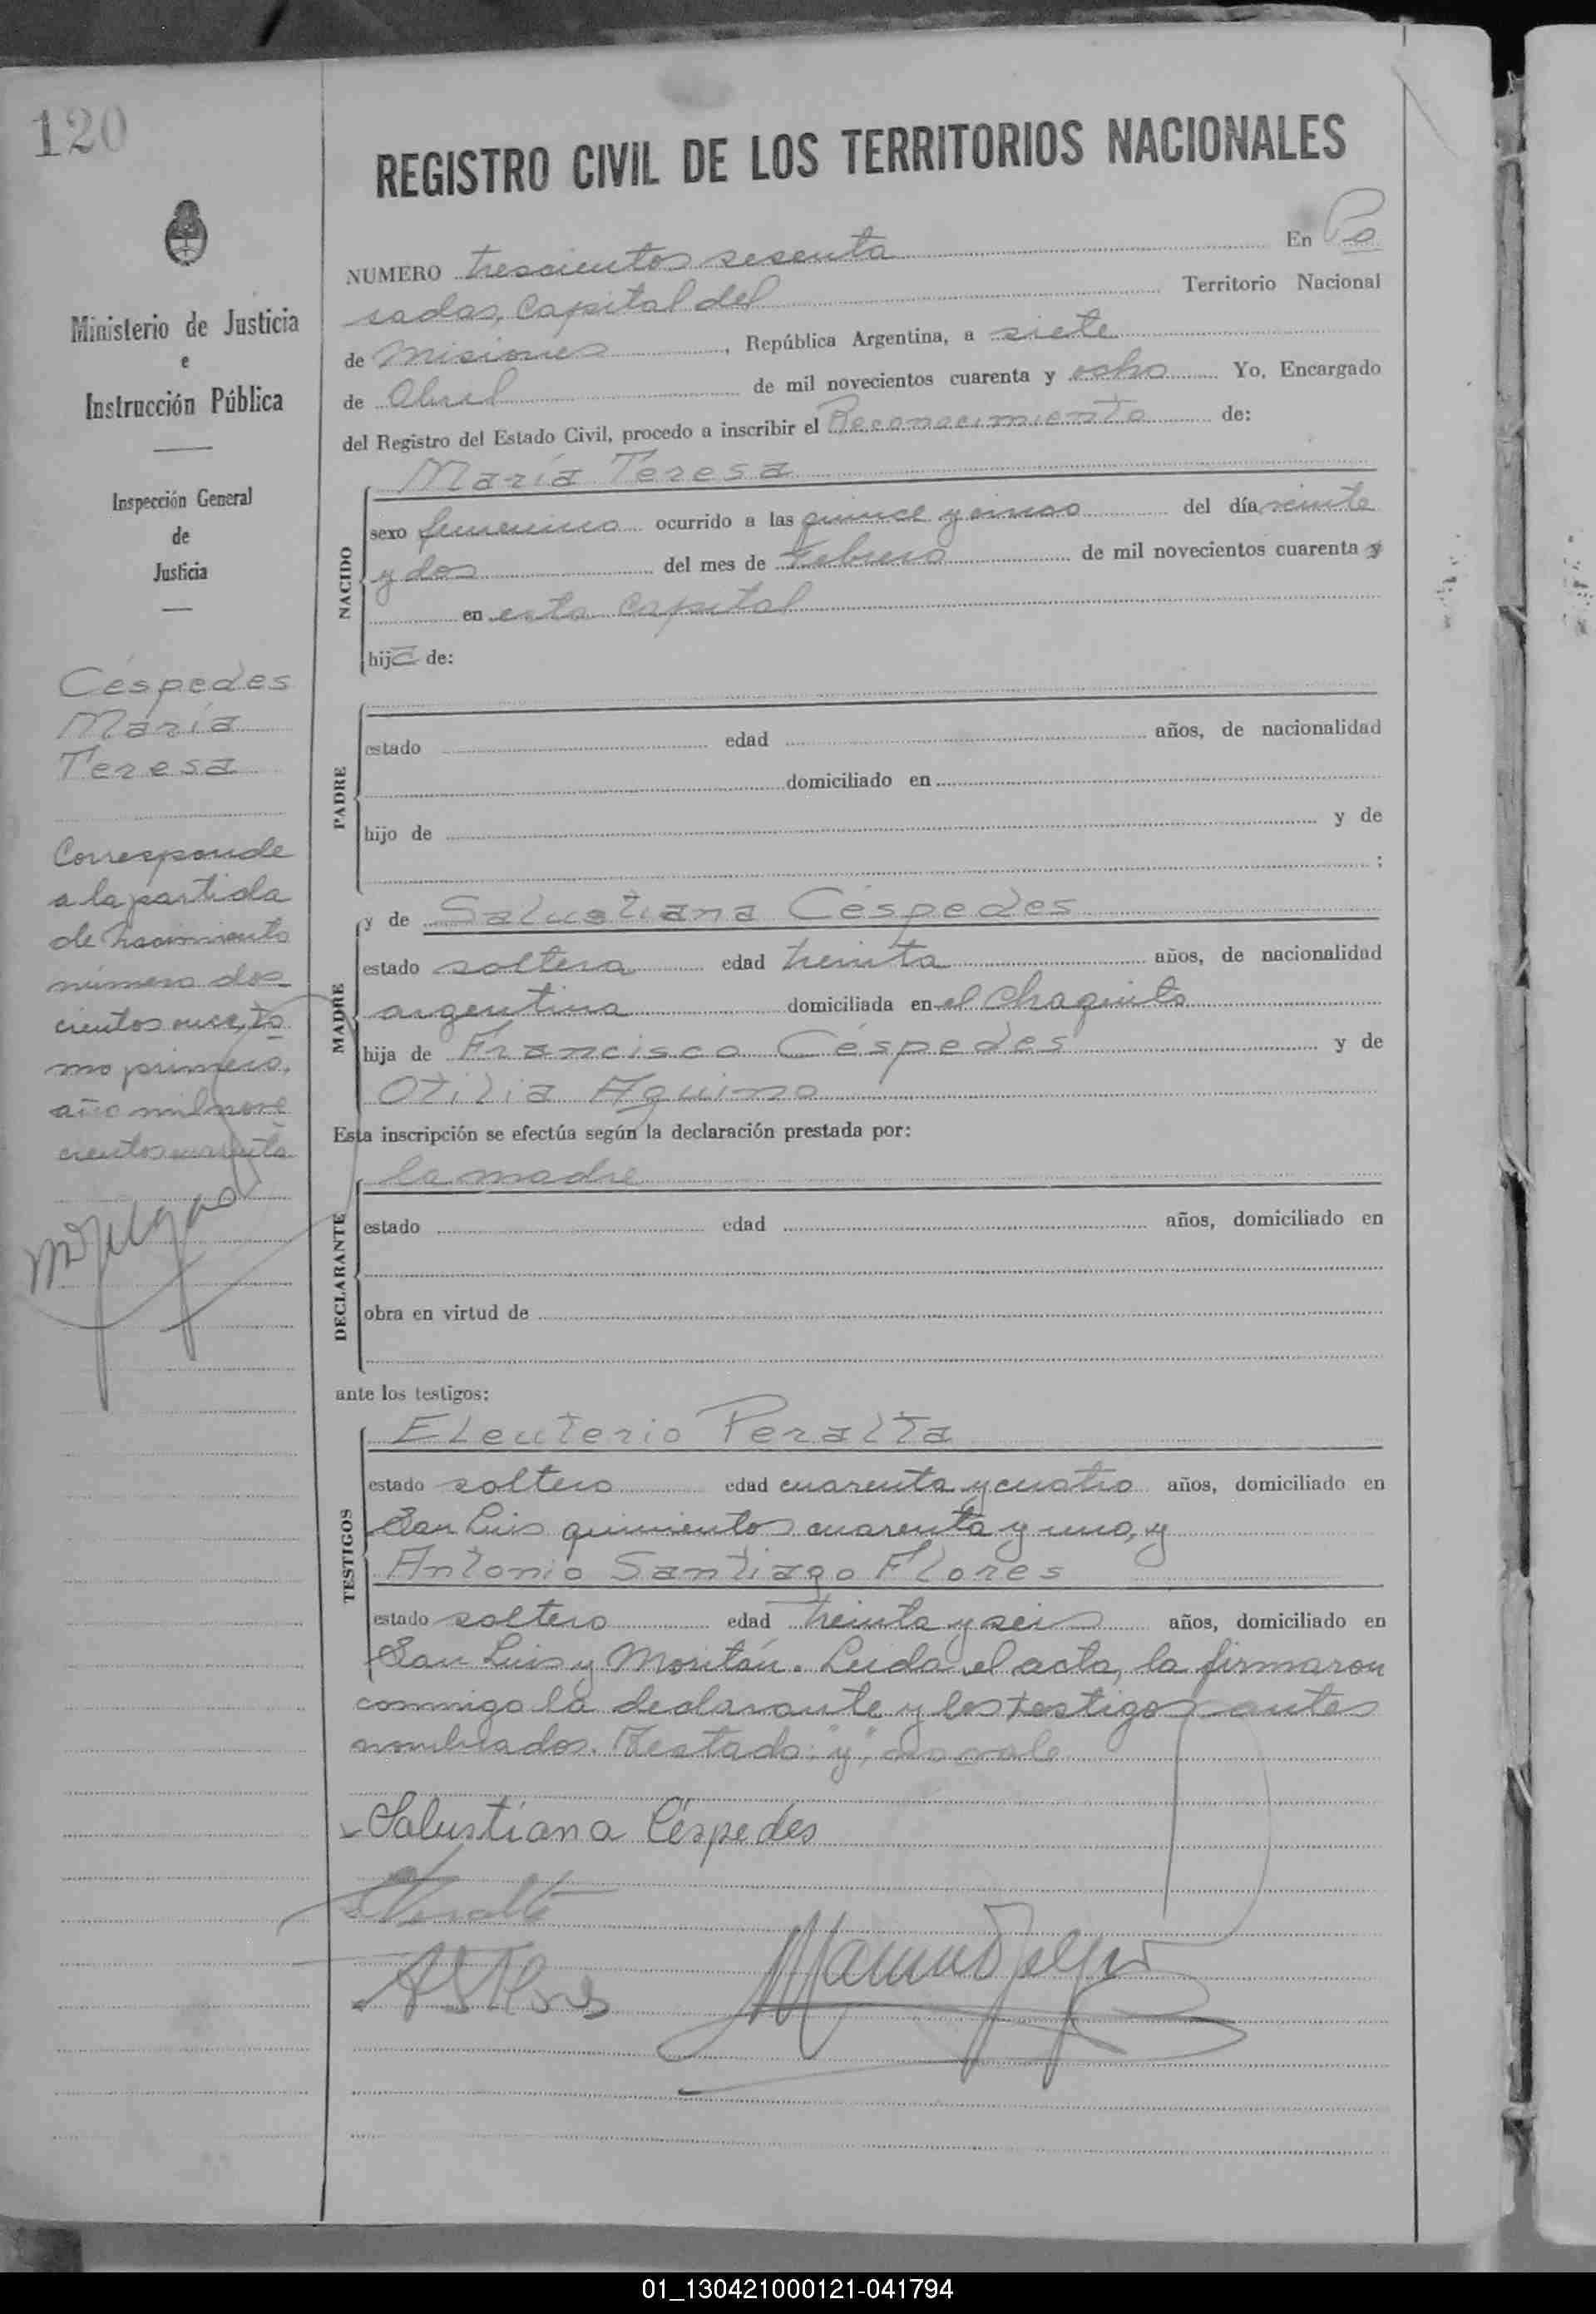 120
REGISTRO CIVIL DE LOS TERRITORIOS NACIONALES
NUMERO trescientos sesenta En Po
sadas, Capital del Territorio Nacional
de Misiones, República Argentina, a siete
de Abril de mil novecientos cuarenta y ocho Yo, Encargado
del Registro del Estado Civil, procedo a inscribir el Reconocimiento de:
Ministerio de Justicia
e
Instrucción Pública
Inspección General
de
Justicia
Céspedes
María
Teresa
Corresponde
a la partida
de nacimiento
número dos-
cientos once, to
mo primero,
año mil nove
cientos cuarenta
NACIDO
María Teresa
sexo femenino ocurrido a las quince y cinco del día veinte
y dos del mes de Febrero de mil novecientos cuarenta y
en esta Capital
hija de:
PADRE
estado edad años, de nacionalidad
domiciliado en
hijo de y de
:
MADRE
y de Salustiana Céspedes
estado soltera edad treinta años, de nacionalidad
argentina domiciliada en el Chaquito
hija de Francisco Céspedes y de
Otilia Aquino
Esta inscripción se efectúa según la declaración prestada por:
DECLARANTE
la madre
estado edad años, domiciliado en
obra en virtud de
ante los testigos:
TESTIGOS
Eleuterio Peralta
estado soltero edad cuarenta y cuatro años, domiciliado en
San Luis quinientos cuarenta y uno, y
Antonio Santiago Flores
estado soltero edad treinta y seis años, domiciliado en
San Luis y Moritán. Leida el acta, la firmaron
conmigo la declarante y los testigos antes
nombrados. Testado: "y", no vale
Salustiana Céspedes
Peralta
A S Flores
01_130421000121-041794